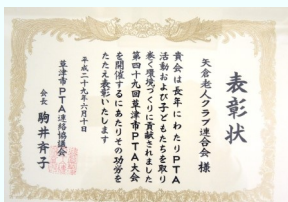 表彰状
矢倉老人クラブ連合会 様
貴会は長年にわたりPTA
活動および子どもたちを取り
巻く環境づくりに貢献されました
第四十九回草津市PTA大会
を開催するにあたりその功労を
たたえ表彰いたします
平成二十九年六月十日
草津市PTA連絡協議会
会長 駒井斉子